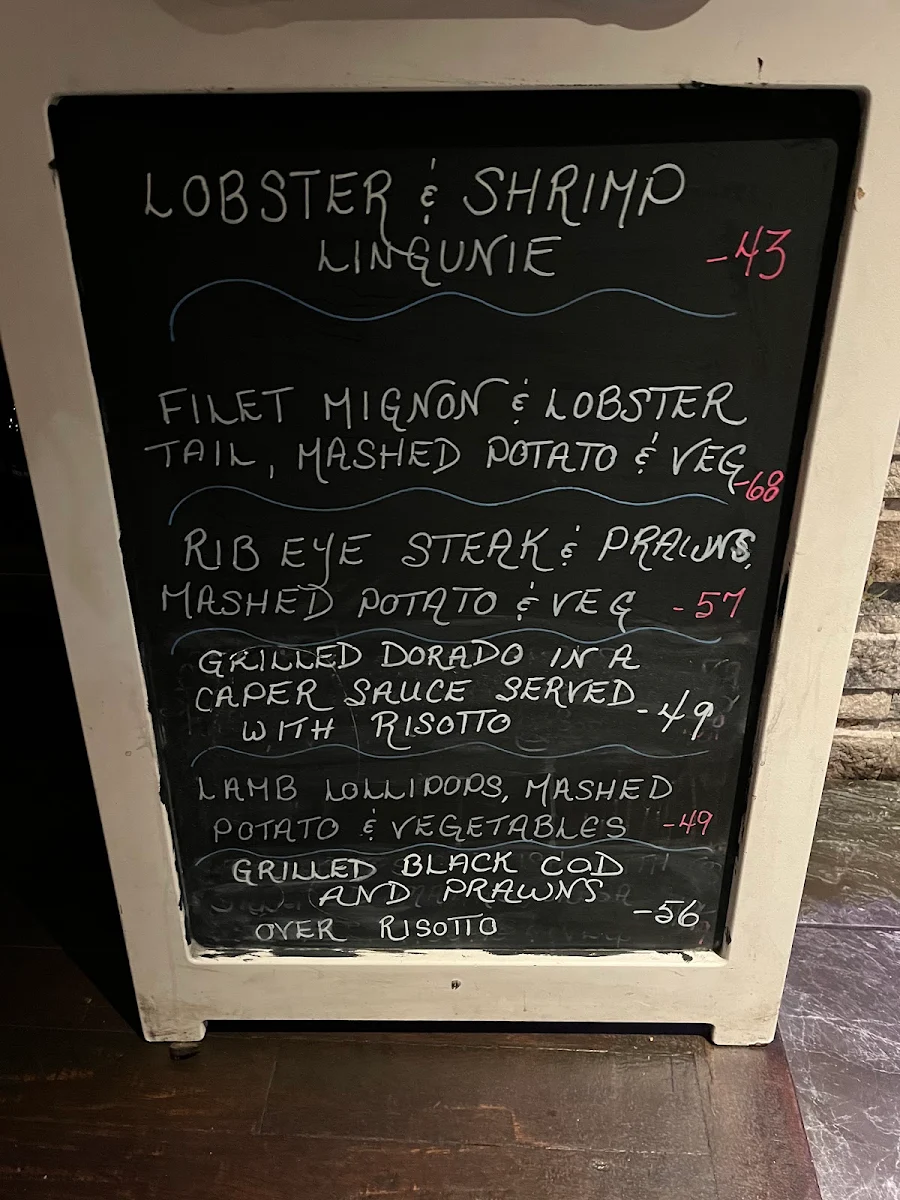 LOBSTER & SHRIMP
LINGUNIE -43
FILET MIGNON & LOBSTER
TAIL, MASHED POTATO & VEG -68
RIB EYE STEAK & PRAWNS,
MASHED POTATO & VEG -57
GRILLED DORADO IN A
CAPER SAUCE SERVED
WITH RISOTTO -49
LAMB LOLLIPOPS, MASHED
POTATO & VEGETABLES -49
GRILLED BLACK COD
AND PRAWNS
OVER RISOTTO -56